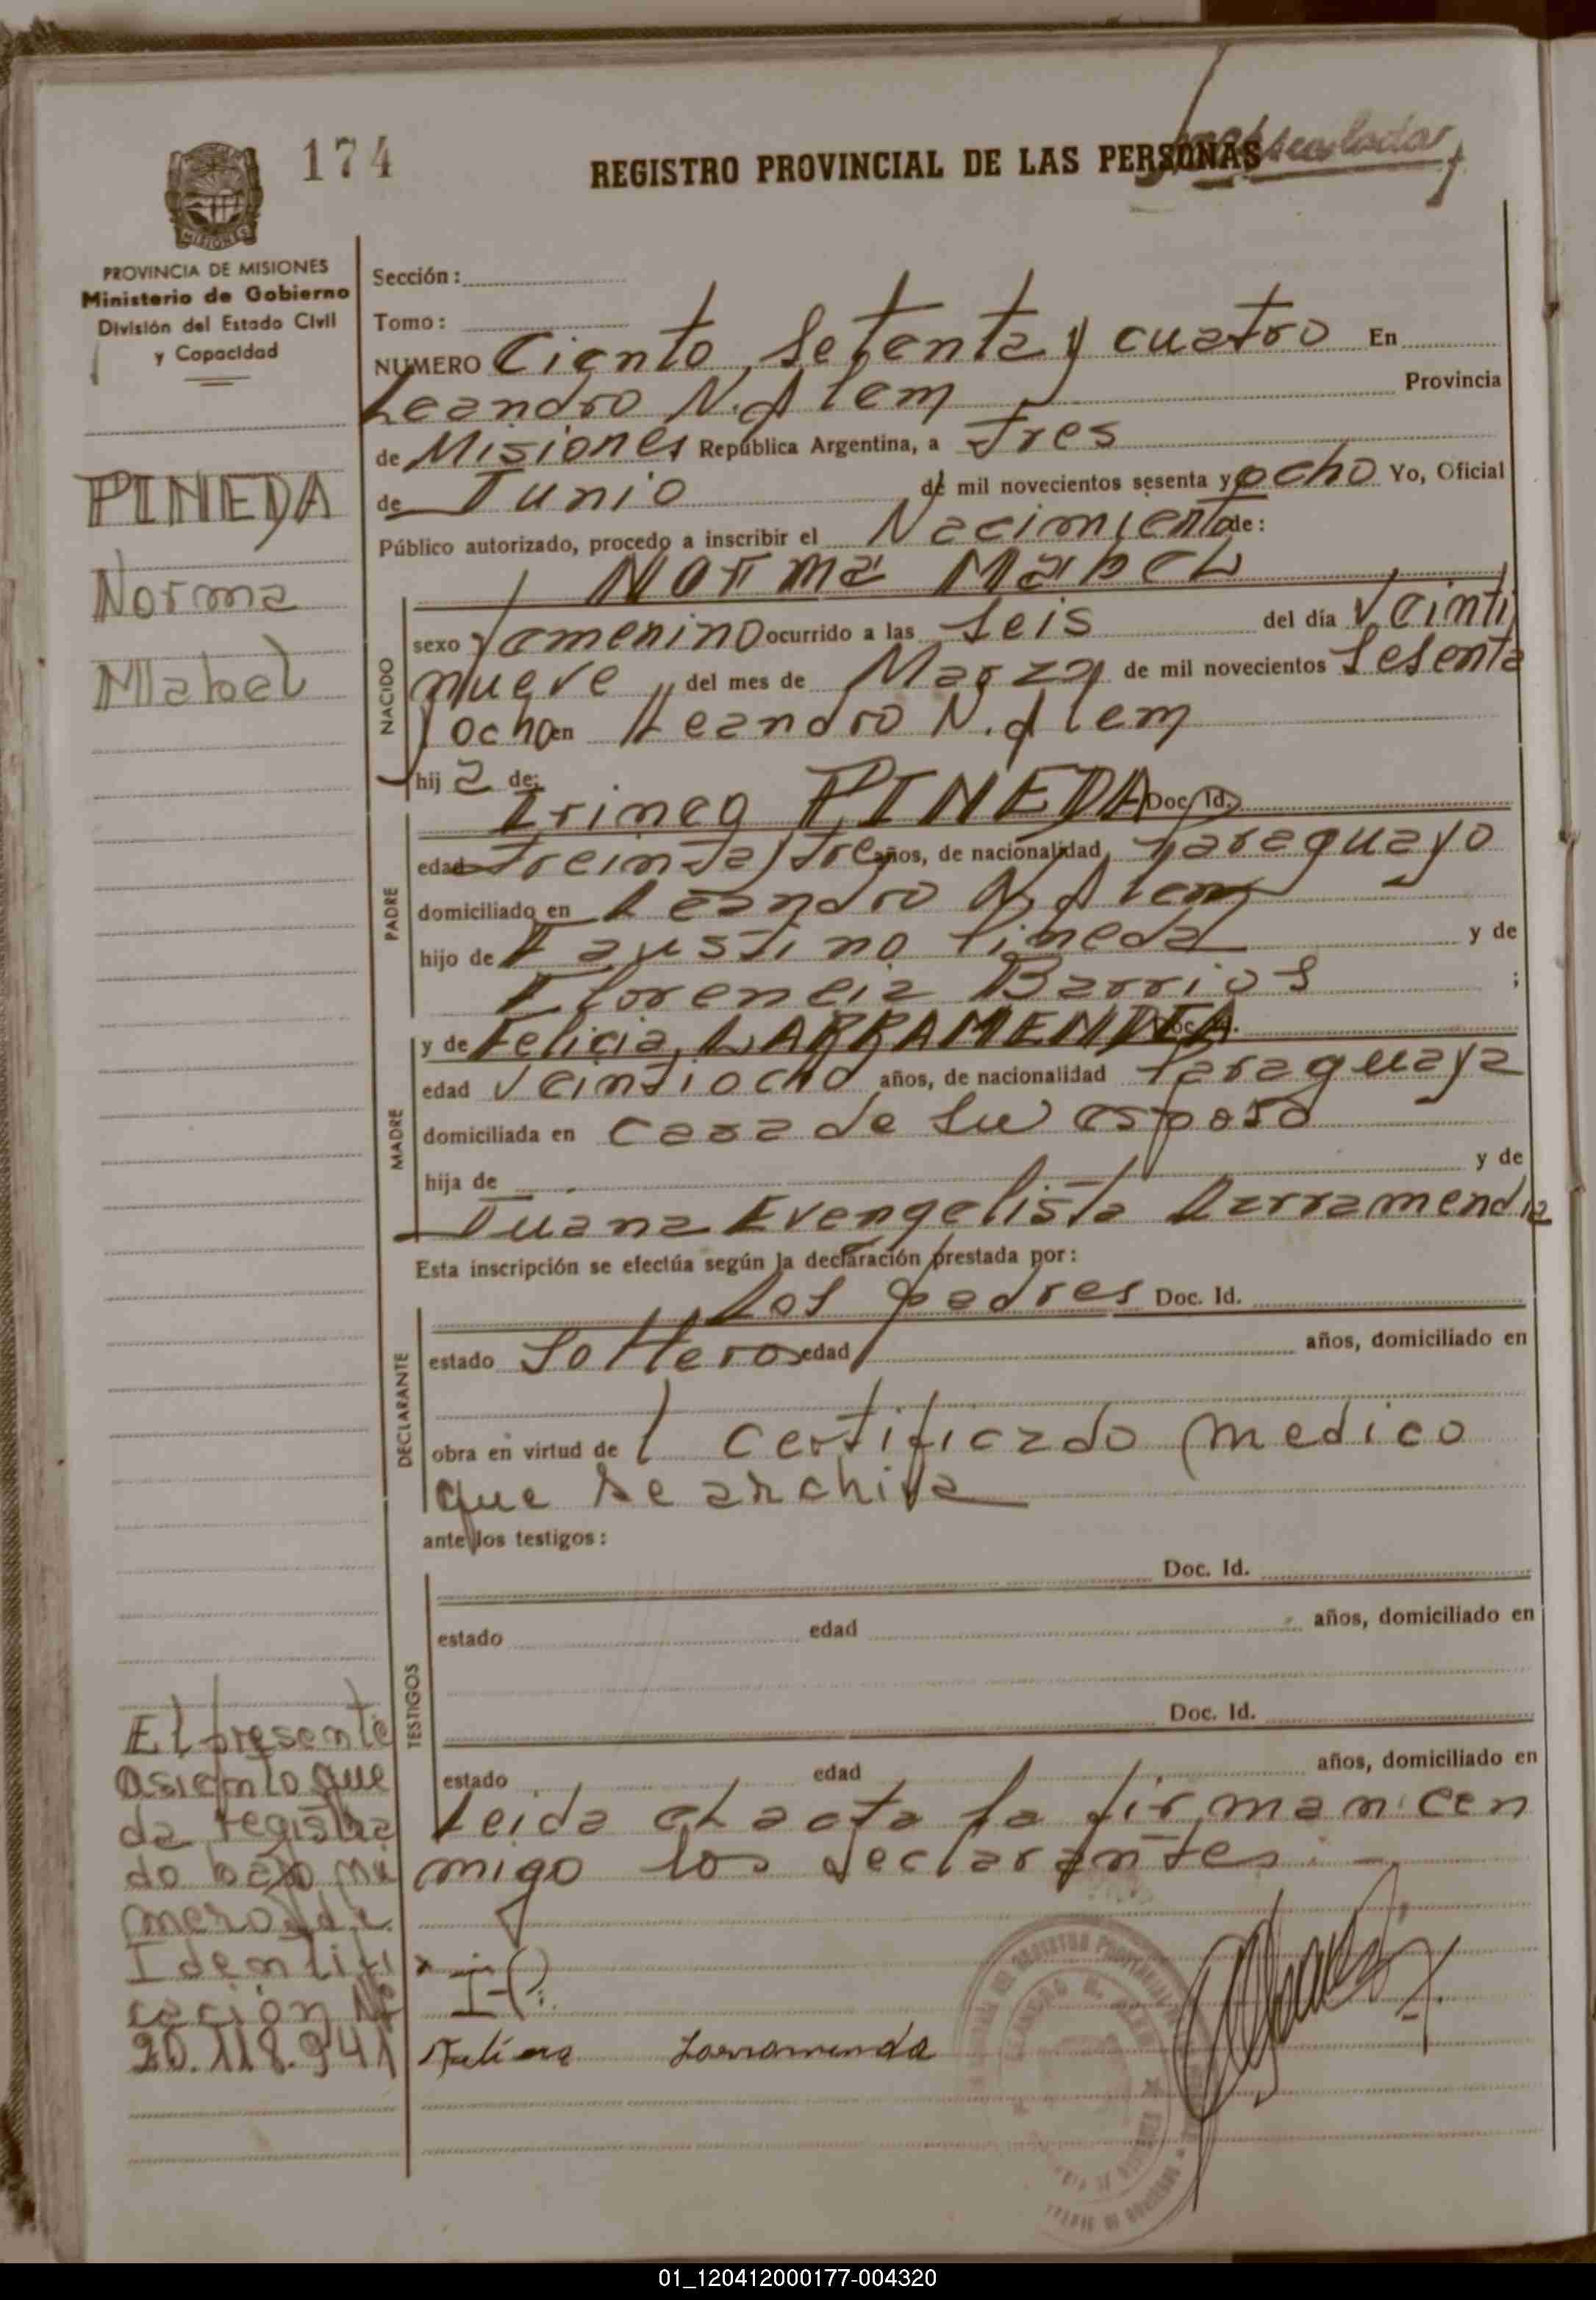 174
REGISTRO PROVINCIAL DE LAS PERSONAS
MISIONES
PROVINCIA DE MISIONES
Ministerio de Gobierno
División del Estado Civil
y Capacidad
PINEDA
Norma
Mabel
Sección:
Tomo:
NUMERO Ciento setenta y cuatro En
Leandro N. Alem Provincia
de Misiones República Argentina, a tres
de Junio de mil novecientos sesenta y ocho Yo, Oficial
Público autorizado, procedo a inscribir el Nacimiento de:
Norma Mabel
NACIDO
sexo femenino ocurrido a las seis del día veinti
nueve del mes de Marzo de mil novecientos sesenta
y ocho en Leandro N. Alem
hij a de:
PADRE
Irineo PINEDA Doc. Id.
edad treinta y tres años, de nacionalidad paraguayo
domiciliado en Leandro N. Alem
hijo de Faustino Pineda y de
Florencia Barrios ;
MADRE
y de Felicia LARRAMENDIA Doc. Id.
edad veintiocho años, de nacionalidad paraguaya
domiciliada en casa de su esposo
hija de y de
Juana Evengelista Larramendia
Esta inscripción se efectúa según la declaración prestada por:
DECLARANTE
Los padres Doc. Id.
estado solteros edad años, domiciliado en
obra en virtud de l certificado medico
que se archiva
ante los testigos:
TESTIGOS
Doc. Id.
estado edad años, domiciliado en
Doc. Id.
estado edad años, domiciliado en
Leida el acta la firman con
migo los declarantes.-
El presente
asiento que
da registra
do bajo nú
mero de
Identifi
cación Nº
20.118.941
Larramenda
01_120412000177-004320